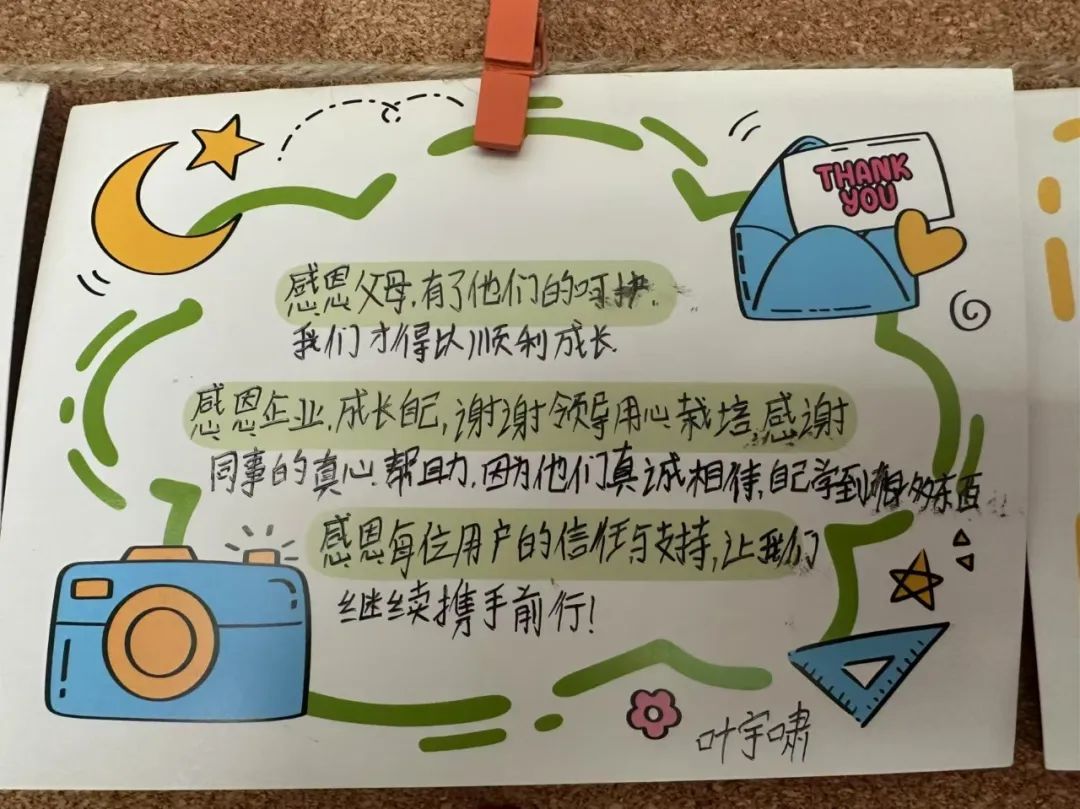 THANK
YOU
感恩父母,有了他们的呵护,
我们才得以顺利成长.
感恩企业,成长自己,谢谢领导用心栽培,感谢
同事的真心帮助,因为他们真诚相待,自己学到很多东西
感恩每位用户的信任与支持,让我们
继续携手前行!
叶宇啸